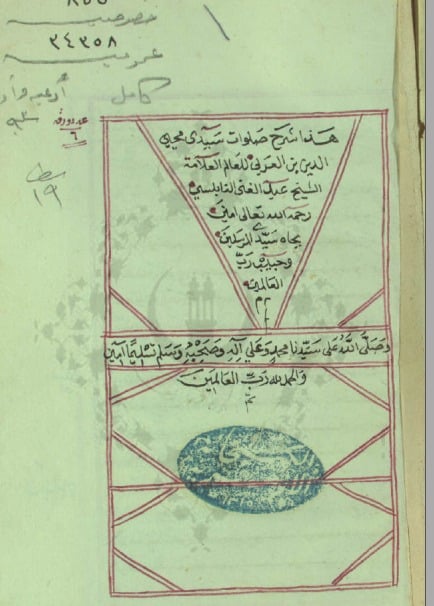 ٨٥٥
خصوصيه
٣٤٣٥٨
عموميه
كامل
أدعيه وأوراد
عدد ورقه
٦
٩٣
١٩
هذا شرح صلوات سيدي محيي
الدين بن العربي للعالم العلامة
الشيخ عبد الغني النابلسي
رحمه الله تعالى امين
بجاه سيد المرسلين
وحبيب رب
العالمين
م م
وصلى الله على سيدنا محمد وعلى آله وصحبه وسلم تسليمًا امين
والحمد لله رب العالمين